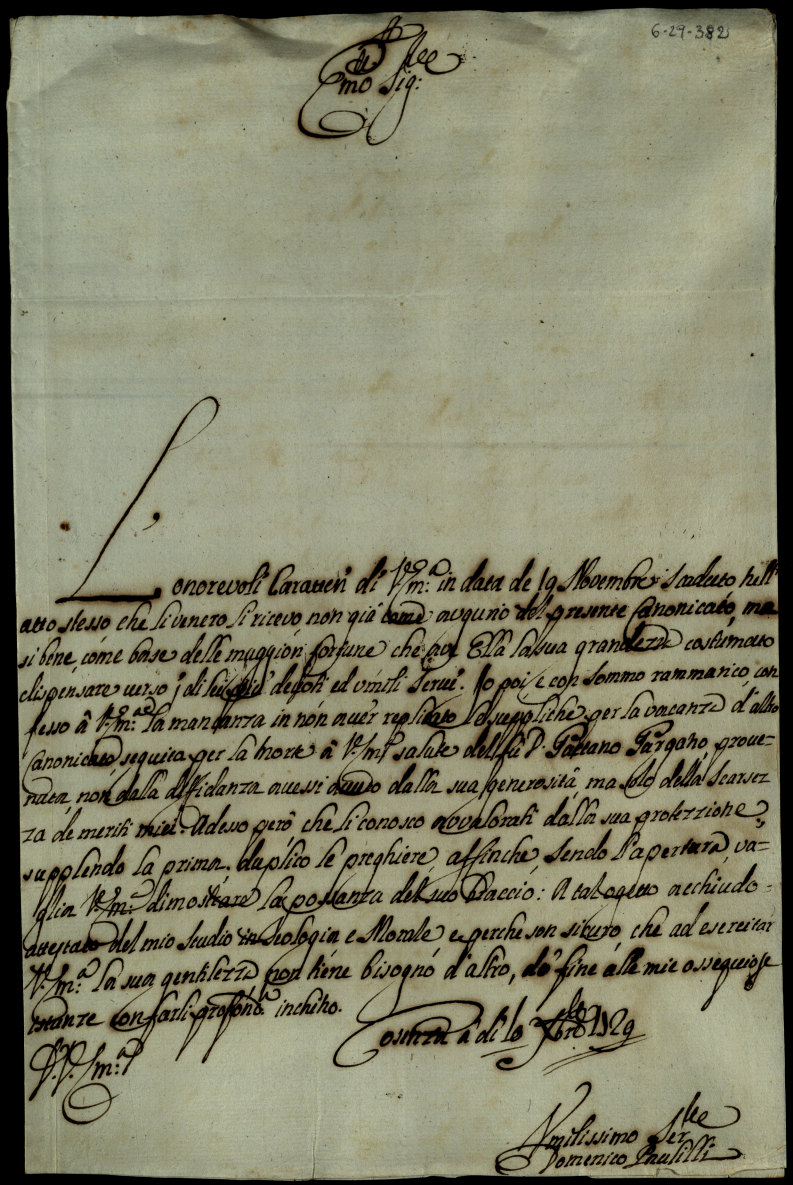 6-29-382
Emo Sig:
L'onorevoli Caratteri di V. Em:a in data de 19 Novembre scaduto nell'
atto stesso che li venero li ricevo non già come augurio del presente Canonicato, ma
si bene, come base delle maggiori fortune che ave Ella la sua grandezza costumato
dispensare verso i di lei più devoti ed umili Servi. Io poi e con sommo rammarico con
fesso à V. Em:a la mancanza in non aver replicato le suppliche per la vacanza d'altro
Canonicato seguita per la morte à V. Em:a salute del fù D. Gaetano Gargano, prove-
nuta, non dalla diffidanza avessi avuto dalla sua generosità ma solo della Scarsez
za de meriti miei. Adesso però che li conosco avvalorati dalla sua protezzione,
supplendo la prima, duplico le preghiere affinche, sendo l'apertura, va-
glia V. Em:a dimostrare la possanza del suo Braccio: A tal ogetto acchiudo
attestato del mio studio in Teologia e Morale e perche son sicuro che ad esercitar
V. Em:a la sua gentilezza non tiene bisogno d'altro, dò fine alle mie ossequiose
istanze con farli profondo inchino.
Cosenza à di 10 Xbre 1729
D. V. Em:a
Umilissimo Ser
Domenico Paulilli